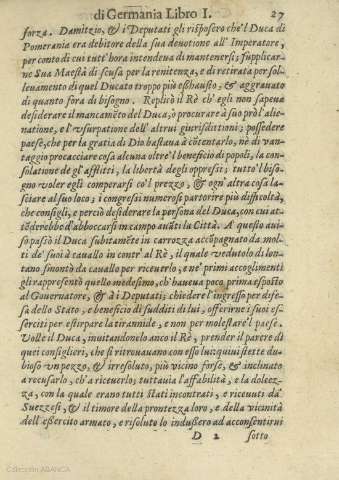 di Germania Libro I. 27
forza. Damitzio, & i Deputati gli risposero che'l Duca di
Pomerania era debitore della sua deuotione all' Imperatore,
per conto di cui tutt'hora intendeua di mantenersi; supplicar-
ne Sua Maestà di scusa per la renitenza, e di retirata per sol-
leuamento di quel Ducato troppo più esshausto, & aggrauato
di quanto fora di bisogno. Replicò il Rè ch'egli non sapeua
desiderare il mancamẽto del Duca, ò procurare à suo prò l'alie-
natione, e l'vsurpatione dell' altrui giurisditioni; possedere
paese, che per la gratia di Dio bastaua à cõtentarlo, nè di van-
taggio procacciare cosa alcuna oltre'l beneficio di popoli, la con-
solatione de gl'afflitti, la libertà degli oppressi; tutto'l biso-
gno voler egli comperarsi co'l prezzo, & ogn'altra cosa la-
sciare al suo loco; i congressi numerosi partorire più difficoltà,
che consigli, e perciò desiderare la persona del Duca, con cui at-
tẽderebbe d'abboccarsi in campo auãti la Città. A questo aui-
so passò il Duca subitamẽte in carrozza accõpagnato da mol-
ti de' suoi à cauallo in contr' al Rè, il quale vedutolo di lon-
tano smontò da cauallo per riceuerlo, e ne' primi accoglimenti
gli rappresentò quello medesimo, ch'haueua poco prima esposto
al Gouernatore, & à i Deputati; chiedere l'ingresso per dife-
sa dello Stato, e beneficio di sudditi di lui, offerirne i suoi es-
serciti per estirpare la tirannide, e non per molestare'l paese.
Volle il Duca, inuitandonelo anco il Rè, prender il parere di
quei consiglieri, che si ritrouauano con esso lui; qui ui stette du-
bioso vn pezzo, & irresoluto, più vicino forse, & inclinato
a recusarlo, ch'a riceuerlo; tuttauia l'affabilità, e la dolcez-
za, con la quale erano tutti stati incontrati, e riceuuti da'
Suezzesi, & il timore della prontezza loro, e della vicinità
dell'essercito armato, e risoluto lo indussero ad acconsentirui
D 2 sotto
Colección ABANCA